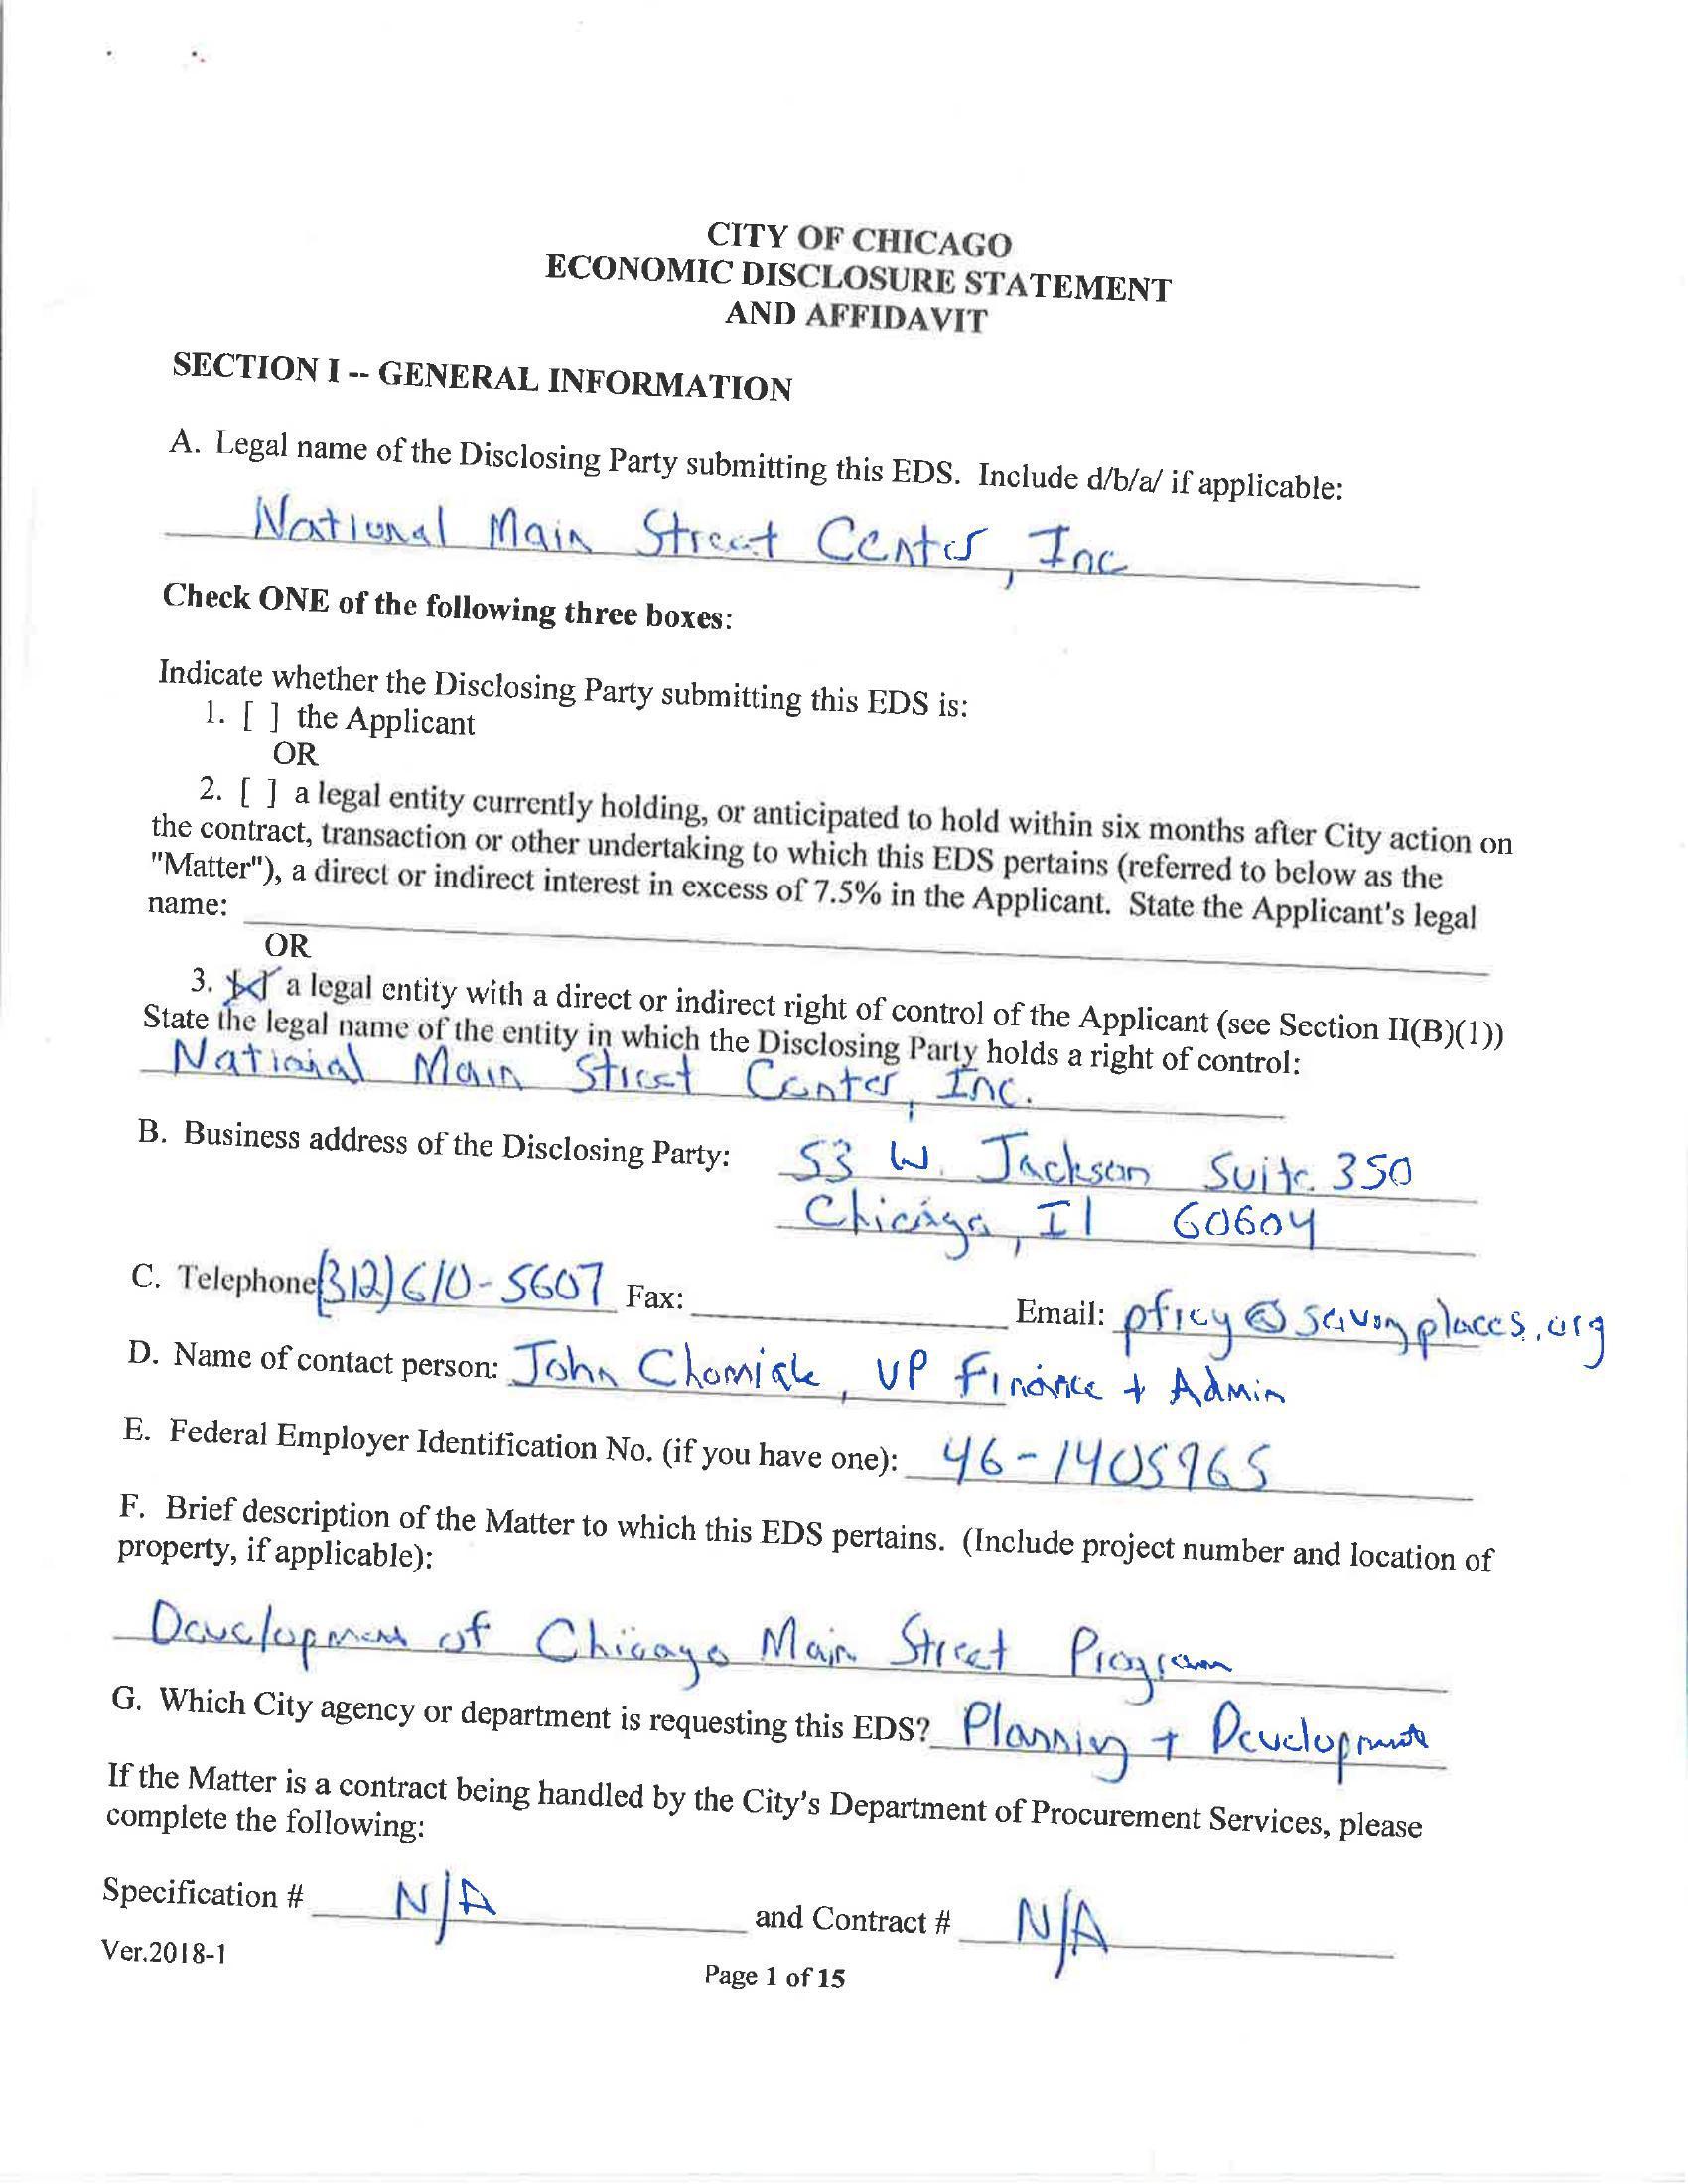 CITY OF CHICAGO
ECONOMIC DISCLOSURE STATEMENT
AND AFFIDAVIT
SECTION I -- GENERAL INFORMATION
A. Legal name of the Disclosing Party submitting this EDS. Include d/b/a/ if applicable:
National Main Street Center, Inc
Check ONE of the following three boxes:
Indicate whether the Disclosing Party submitting this EDS is:
1. [ ] the Applicant
OR
2. [ ] a legal entity currently holding, or anticipated to hold within six months after City action on
the contract, transaction or other undertaking to which this EDS pertains (referred to below as the
"Matter"), a direct or indirect interest in excess of 7.5% in the Applicant. State the Applicant's legal
name:
OR
3. [x] a legal entity with a direct or indirect right of control of the Applicant (see Section II(B)(1))
State the legal name of the entity in which the Disclosing Party holds a right of control:
National Main Street Center, Inc.
B. Business address of the Disclosing Party: 53 W. Jackson Suite 350
Chicago, Il 60604
C. Telephone (312) 610-5607 Fax: Email: @savingplaces.org
D. Name of contact person: John Chomiak, VP Finance + Admin
E. Federal Employer Identification No. (if you have one): 46-1405965
F. Brief description of the Matter to which this EDS pertains. (Include project number and location of
property, if applicable):
Development of Chicago Main Street Program
G. Which City agency or department is requesting this EDS? Planning + Development
If the Matter is a contract being handled by the City's Department of Procurement Services, please
complete the following:
Specification # N/A and Contract # N/A
Ver.2018-1
Page 1 of 15